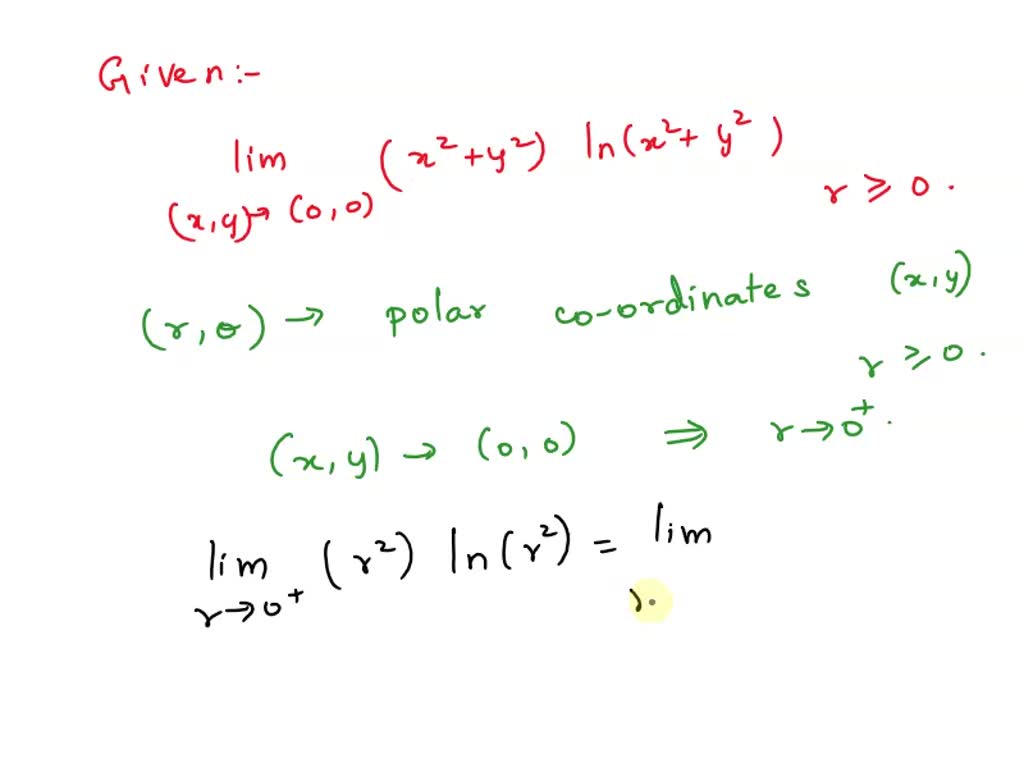 Given:-
lim (x²+y²) ln(x²+ y²)
(x,y)→ (0,0)
r ⩾ 0 .
(r,θ) → polar co-ordinates (x,y)
r ⩾ 0 .
(x,y) → (0,0) ⇒ r→0⁺.
lim (r²) ln(r²) = lim
r→0⁺ r.